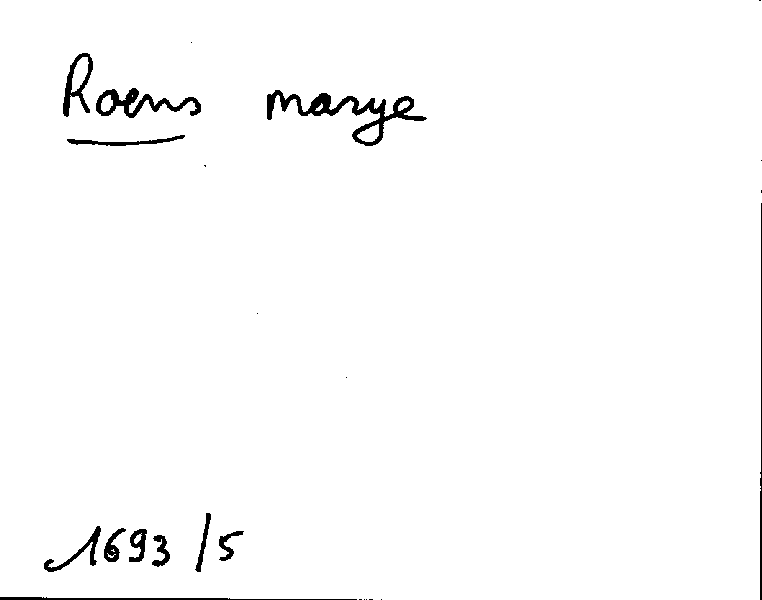 Roens marye
1693/5